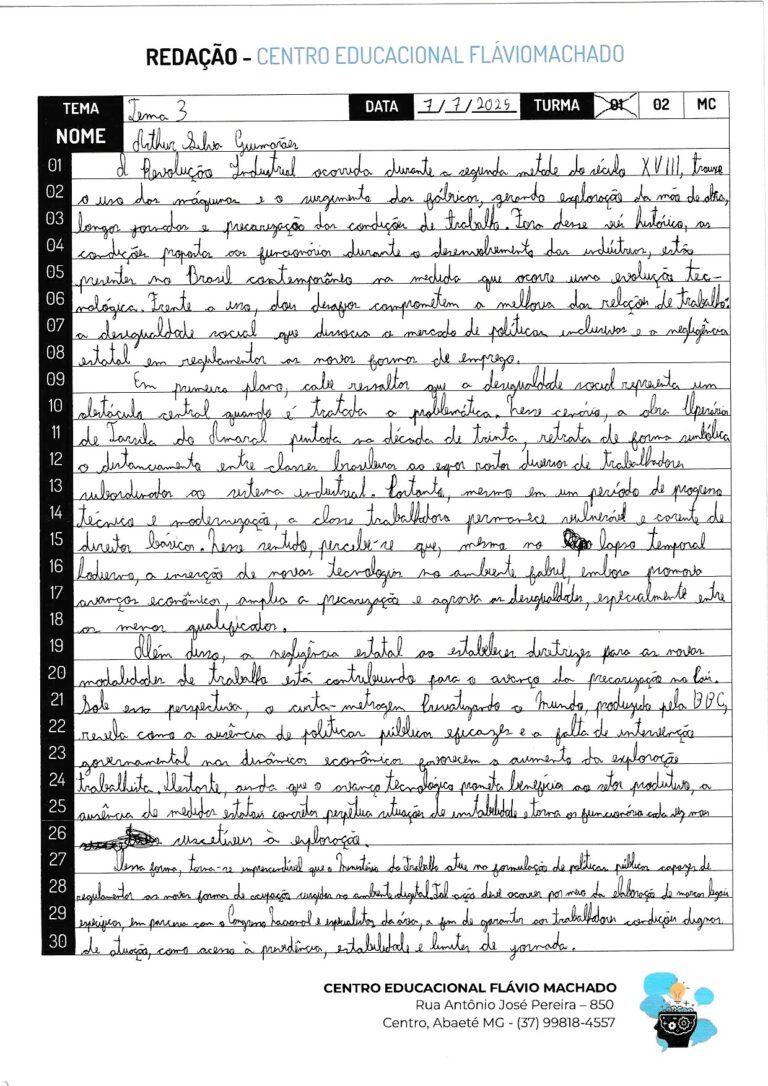 REDAÇÃO - CENTRO EDUCACIONAL FLÁVIOMACHADO
TEMA Tema 3 DATA 7/7/2025 TURMA 01 02 MC
NOME Arthur Silva Guimarães
01 A Revolução Industrial ocorrida durante a segunda metade do século XVIII, trouxe
02 o uso das máquinas e o surgimento das fábricas, gerando exploração da mão de obra,
03 longas jornadas e precarização das condições de trabalho. Fora desse viés histórico, as
04 condições propostas aos funcionários durante o desenvolvimento das indústrias, estão
05 presentes no Brasil contemporâneo na medida que ocorre uma evolução tec-
06 nológica. Frente a isso, dois desafios comprometem a melhoria das relações de trabalho:
07 a desigualdade social que dissocia o mercado de políticas inclusivas e a negligência
08 estatal em regulamentar as novas formas de emprego.
09 Em primeiro plano, cabe ressaltar que a desigualdade social representa um
10 obstáculo central quando é tratada a problemática. Nesse cenário, a obra Operários
11 de Tarsila do Amaral pintada na década de trinta, retrata de forma simbólica
12 o distanciamento entre classes brasileiras ao expor rostos diversos de trabalhadores
13 subordinados ao sistema industrial. Portanto, mesmo em um período de progresso
14 técnico e modernização, a classe trabalhadora permanece vulnerável e carente de
15 direitos básicos. Nesse sentido, percebe-se que, mesmo no lapso temporal
16 hodierno, a inserção de novas tecnologias no ambiente fabril, embora promova
17 avanços econômicos, amplia a precarização e agrava as desigualdades, especialmente entre
18 os menos qualificados.
19 Além disso, a negligência estatal ao estabelecer diretrizes para as novas
20 modalidades de trabalho está contribuindo para o avanço da precarização no País.
21 Sob essa perspectiva, o curta-metragem Privatizando o Mundo, produzido pela BBC,
22 revela como a ausência de políticas públicas eficazes e a falta de intervenção
23 governamental nas dinâmicas econômicas favorecem o aumento da exploração
24 trabalhista. Destarte, ainda que o avanço tecnológico prometa benefícios ao setor produtivo, a
25 ausência de medidas estatais concretas perpétua situações de instabilidade e torna os funcionários cada vez mais
26 suscetíveis à exploração.
27 Dessa forma, torna-se imprescindível que o Ministério do trabalho atue na formulação de políticas públicas capazes de
28 regulamentar as novas formas de ocupação surgidas no ambiente digital. Tal ação deve ocorrer por meio da elaboração de marcos legais
29 específicos, em parceria com o Congresso Nacional e especialistas da área, a fim de garantir aos trabalhadores condições dignas
30 de atuação, como acesso à previdência, estabilidade e limites de jornada.
CENTRO EDUCACIONAL FLÁVIO MACHADO
Rua Antônio José Pereira – 850
Centro, Abaeté MG - (37) 99818-4557